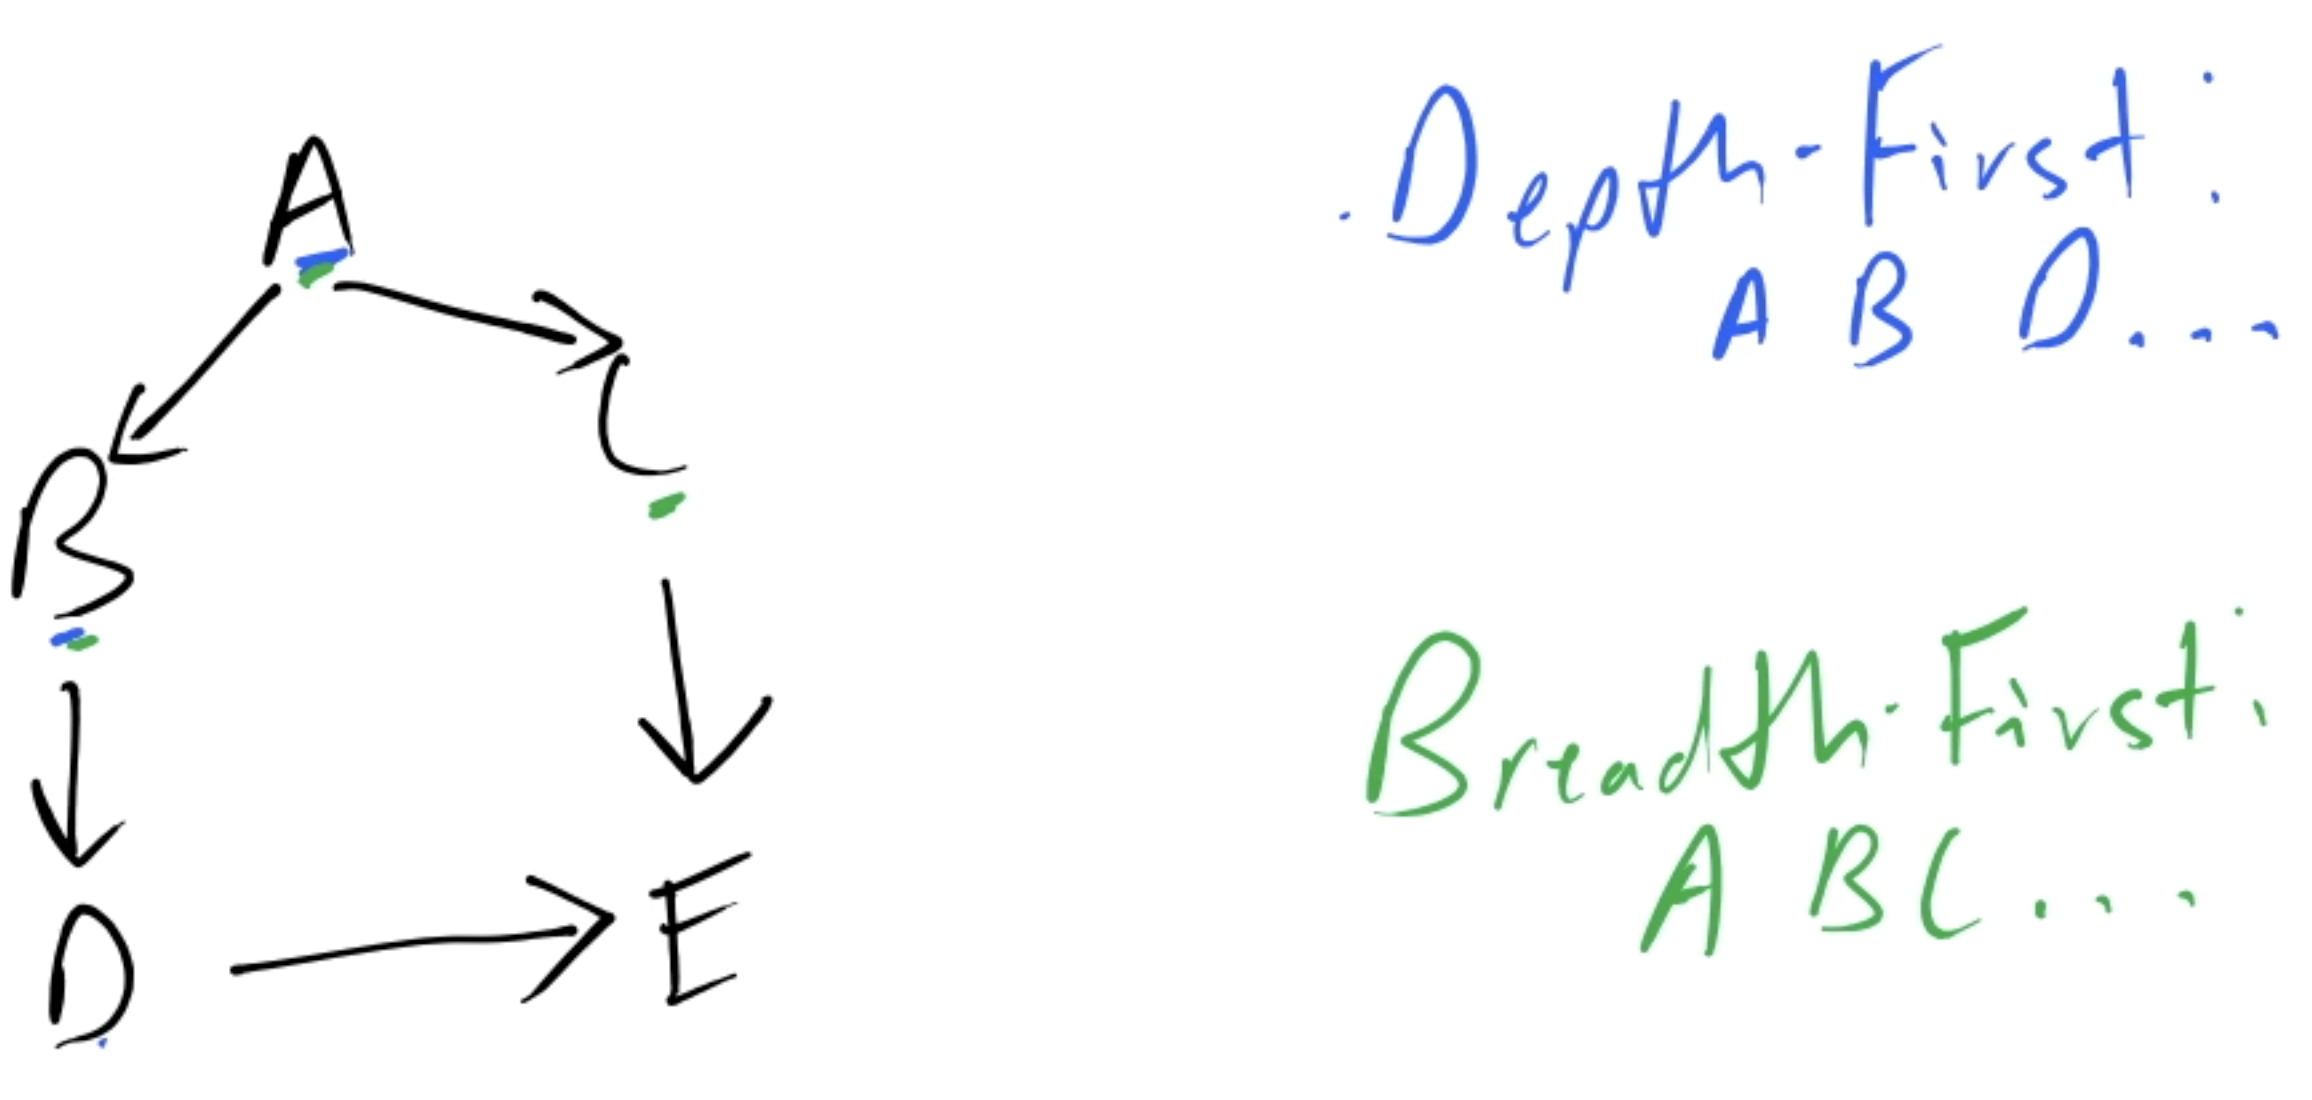 A
B
C
D
E
Depth-First:
A B D...
Breadth-First:
A B C...